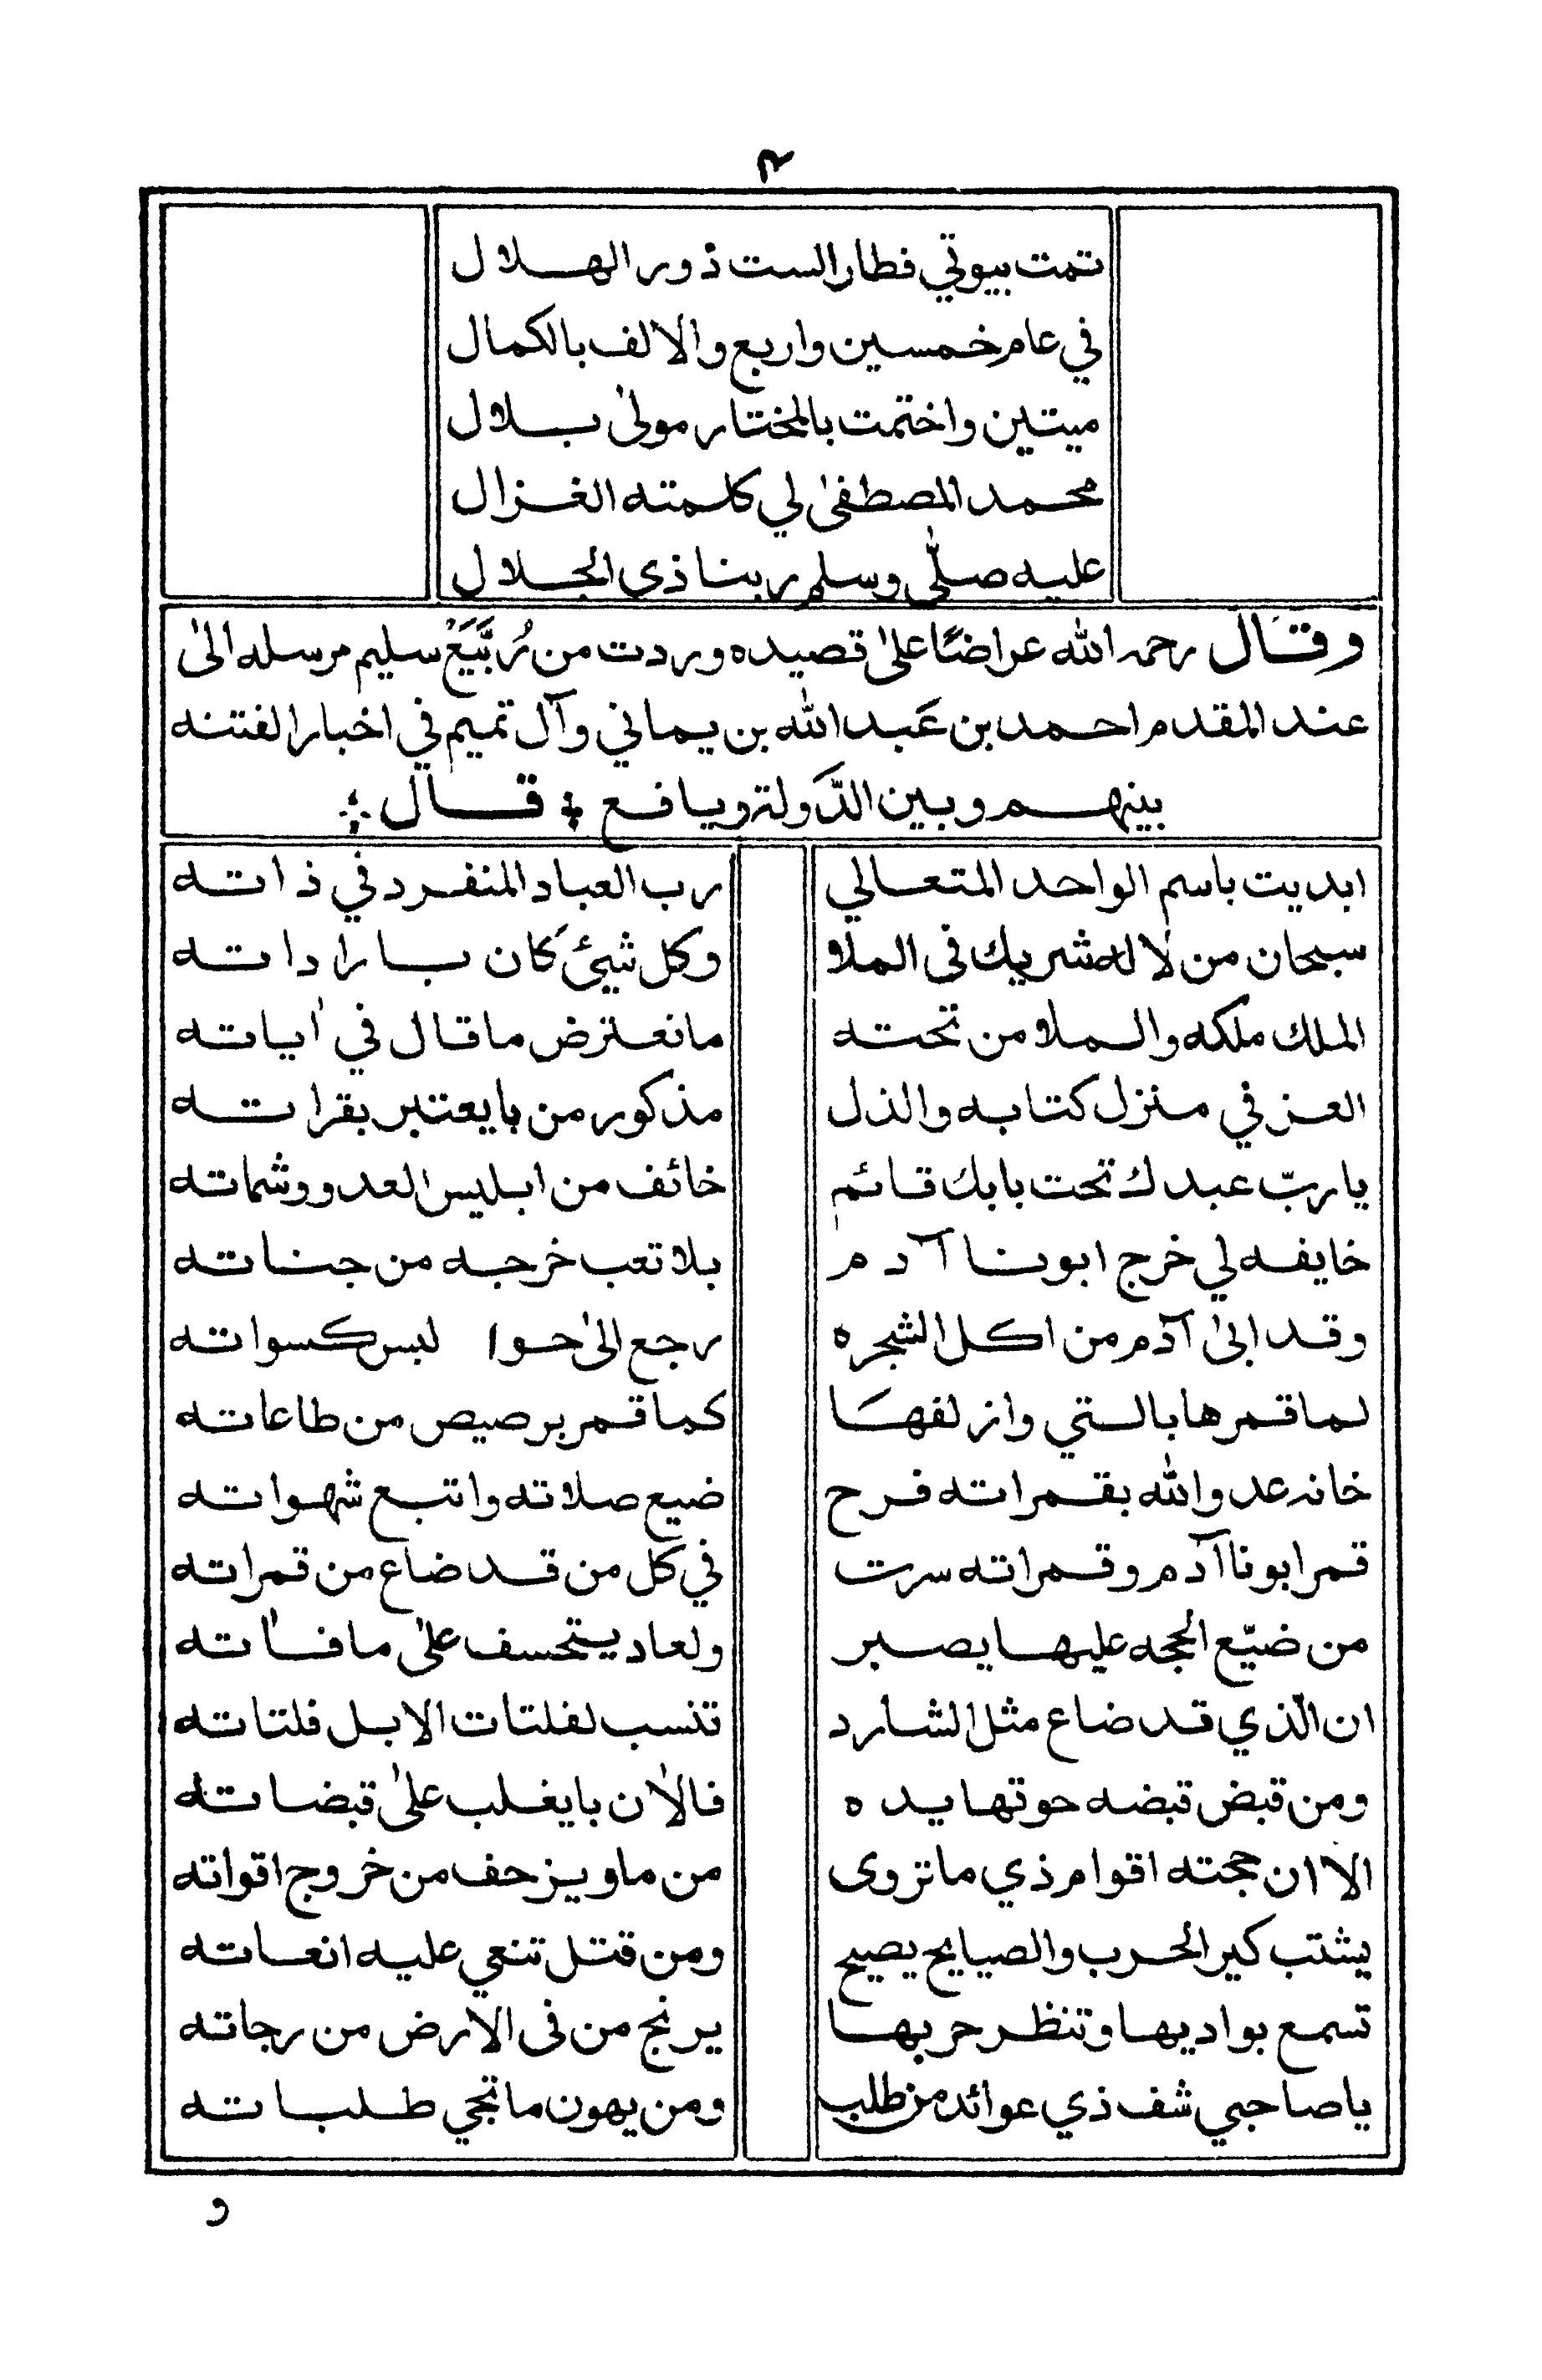 ٤
تمت بيوتي فطار الست ذور الهلال
في عام خمسين واربع والالف بالكمال
ميتين واختمت بالمختار مولىٰ بلال
محمد المصطفىٰ لي كلمته الغزال
عليه صلّٰى وسلم ربنا ذي الجلال
وقَال رحمه الله عراضًا علىٰ قصيده وردت من رُبَّيَعْ سليم مرسله الىٰ
عند المقدم احمد بن عَبد الله بن يماني وآل تميم في اخبار الفتنه
بينهم وبين الدَّولة ويافع ؞ قال ؞
ابديت باسم الواحد المتعالي
رب العباد المنفرد في ذاته
سبحان من لا له شريك فى الملا
وكل شيئ كَان باراداته
الملك ملكه والملا من تحته
ما نعترض ما قال في اٰياته
العز في منزل كتابه والذل
مذكور من بايعتبر بقراته
يا ربّ عبدك تحت بابك قائم
خائف من ابليس العدو وشماته
خايفه لي خرج ابونا آدم
بلا تعب خرجه من جناته
وقد ابىٰ آدم من اكل الشجره
رجع الىٰ حوا لبس كسواته
لما قمرها بالتي وازلفهَا
كما قمر برصيص من طاعاته
خانه عدو الله بقمراته فرح
ضيع صلاته واتبع شهواته
قمر ابونا آدم وقمراته سرت
في كل من قد ضاع من قمراته
من ضيّع الحجه عليها يصبر
ولعاد يتحسف علىٰ ما فاته
ان الّذي قد ضاع مثل الشارد
تنسب لفلتات الابل فلتاته
ومن قبض قبضه حوتها يده
فالاٰن بايغلب علىٰ قبضاته
الا ان حجته اقوام ذي ماتروى
من ماو يزحف من خروج اقواته
يشتب كير الحرب والصيايح يصيح
ومن قتل تنعي عليه انعاته
تسمع بواديها وتنظر حربها
يرنج من فى الارض من رجاته
يا صاحبي شف ذي عوائد من طلب
ومن يهون ما تجي طلباته
و